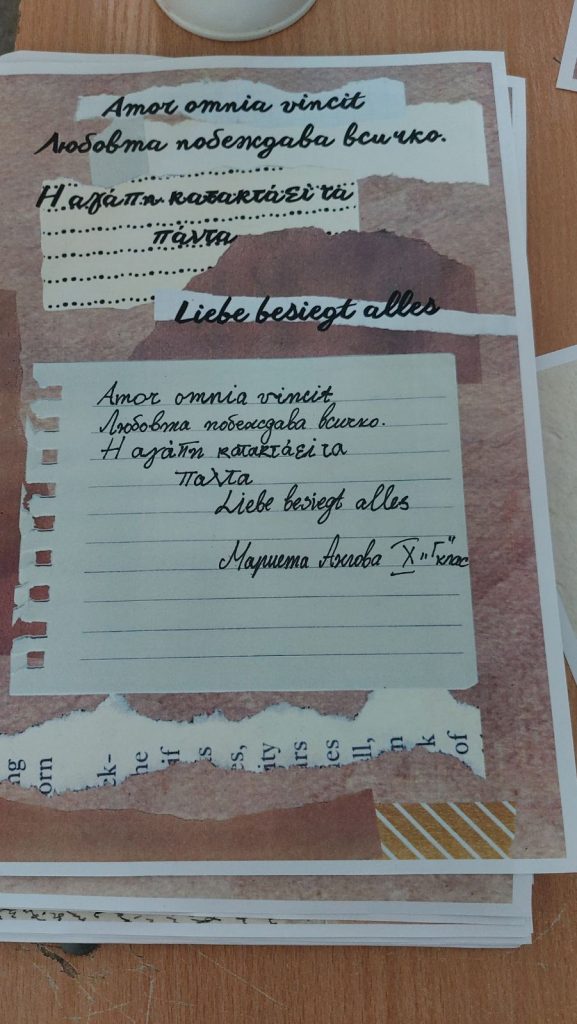 Amor omnia vincit
Любовта побеждава всичко.
Η αγάπη κατακτάει τα
πάντα
Liebe besiegt alles
Amor omnia vincit
Любовта побеждава всичко.
Η αγάπη κατακτάει τα
παλτα
Liebe besiegt alles
Мариета Ангова X "Г" клас
ng
orn
ck-
he
if
s
es,
ity
ars
ies
ll,
m
k
of